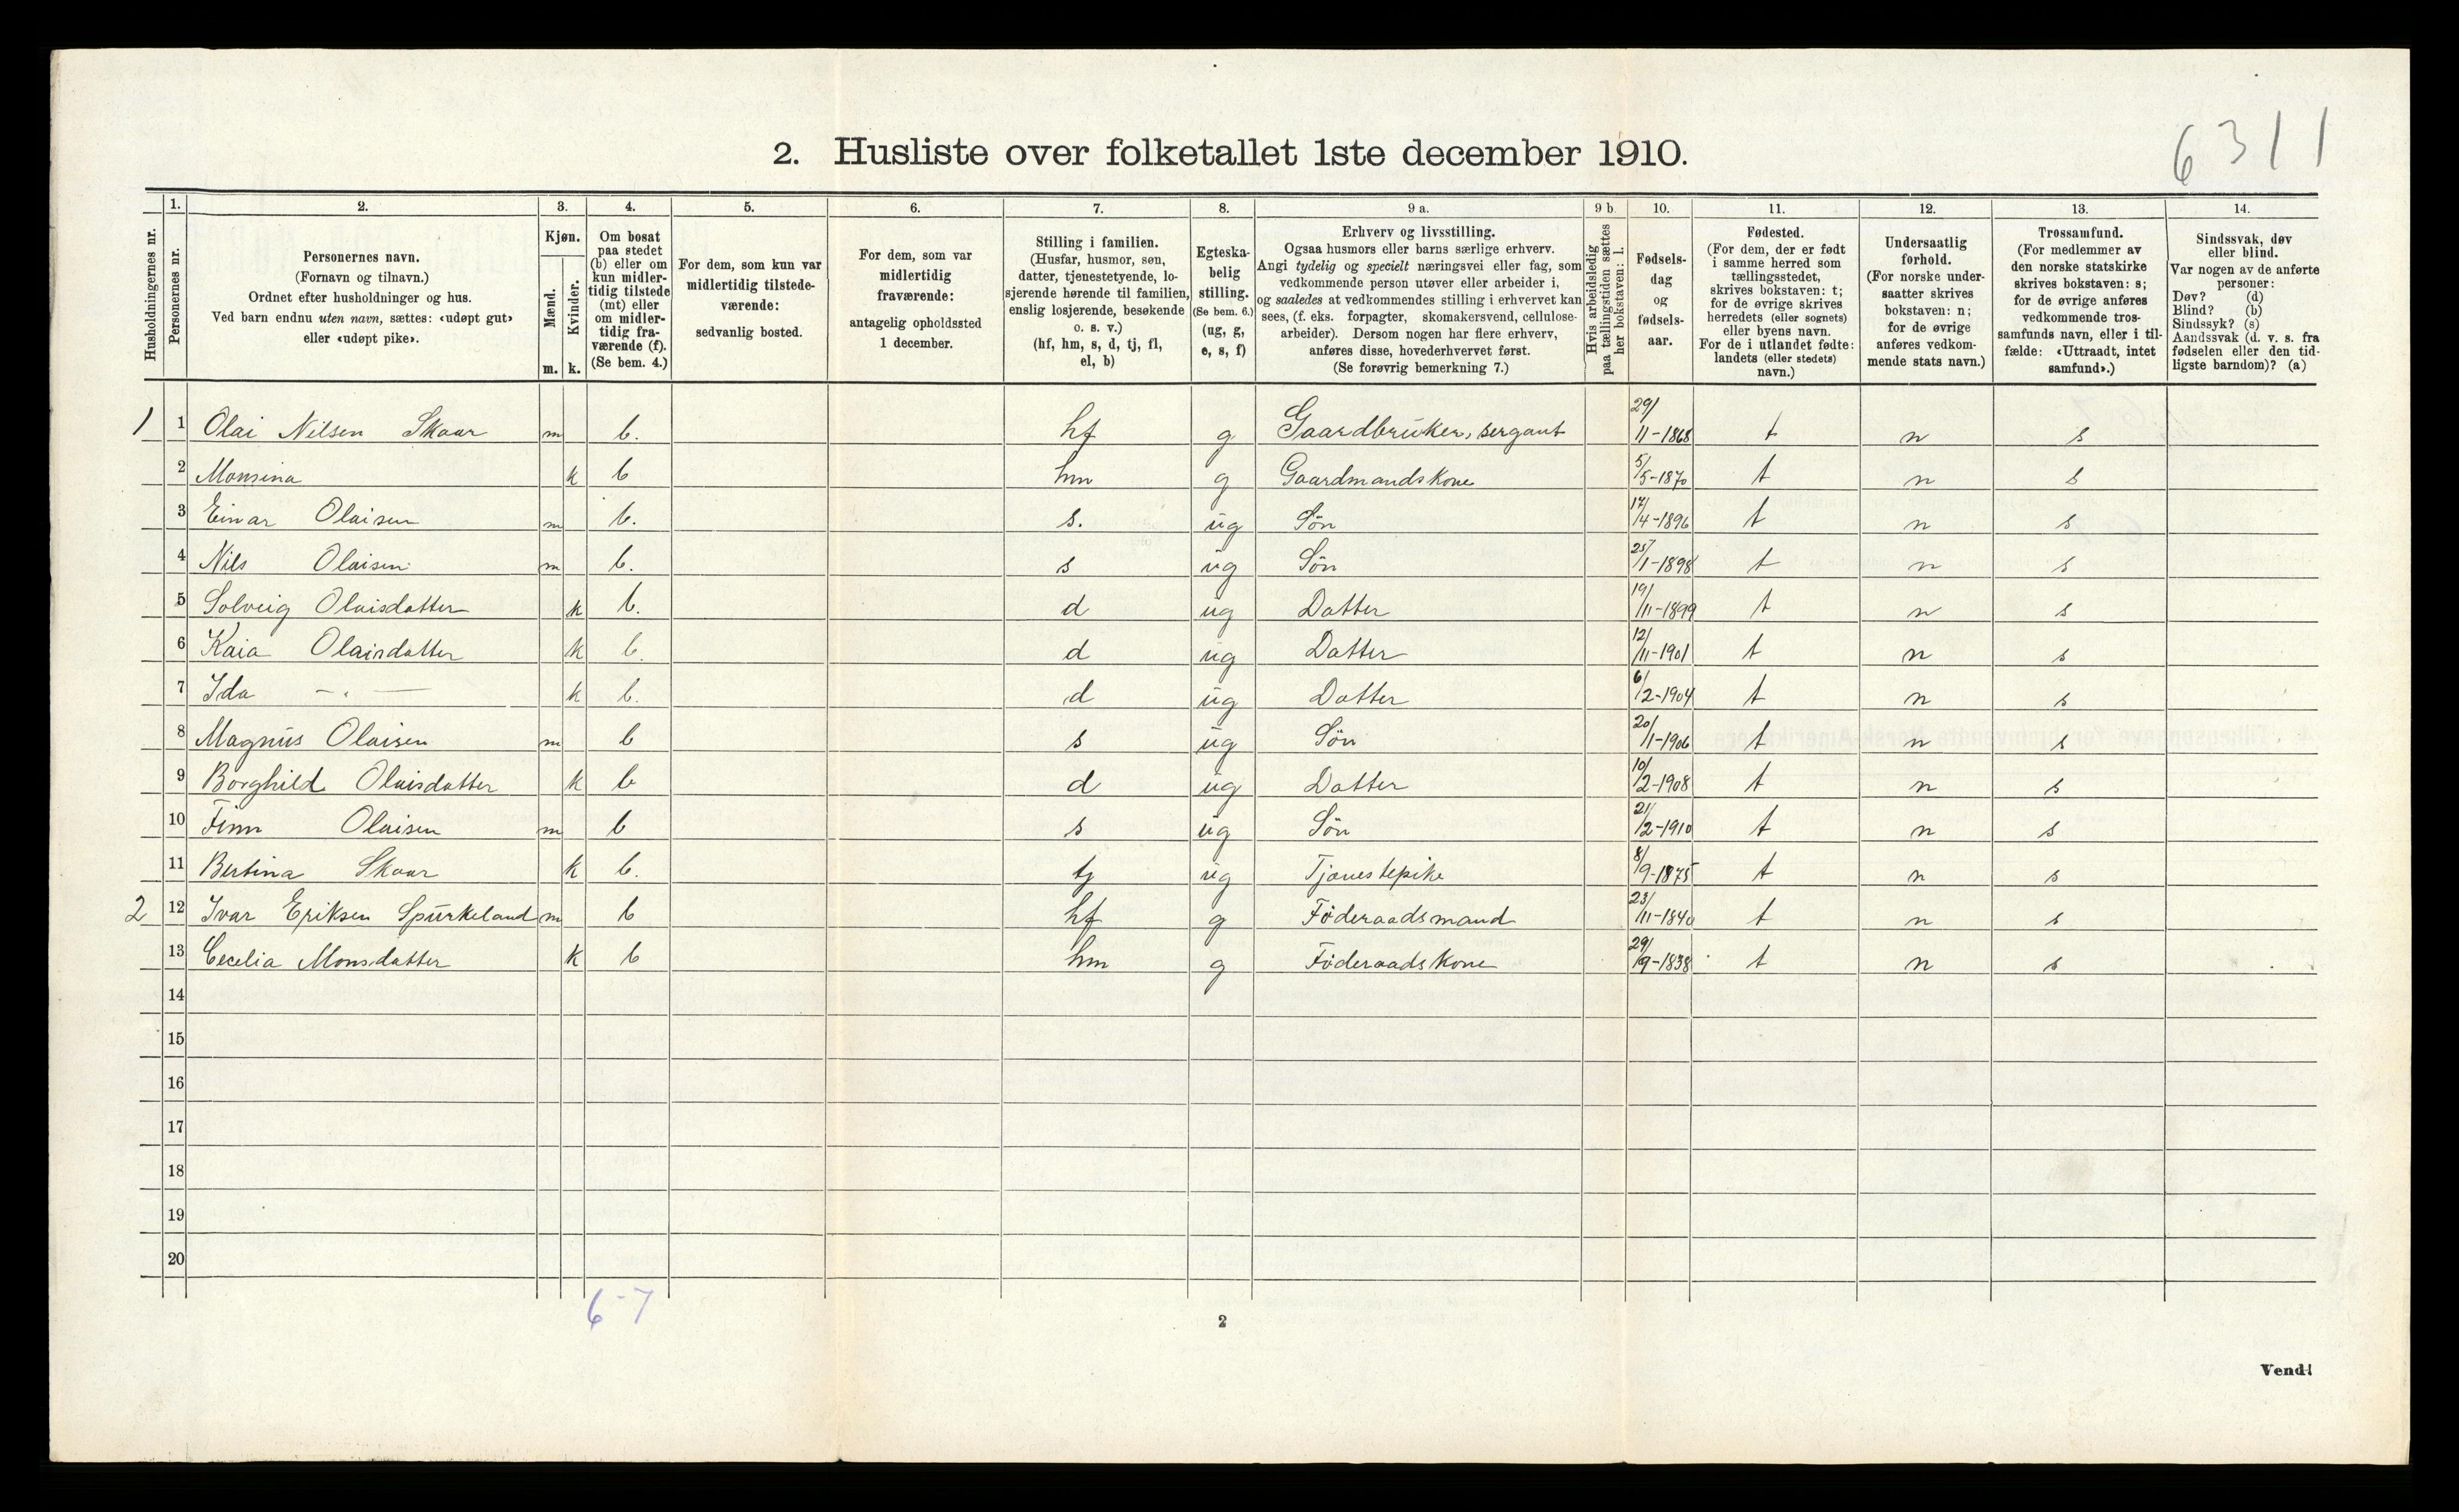 6311
2. Husliste over folketallet 1ste december 1910.
1. 2. 3. 4. 5. 6. 7. 8. 9 a. 9 b. 10. 11. 12. 13. 14.
Husholdningernes nr.
Personernes nr.
Personernes navn.
(Fornavn og tilnavn.)
Ordnet efter husholdninger og hus.
Ved barn endnu uten navn, sættes: «udøpt gut»
eller «udøpt pike».
Kjøn.
Mænd.
Kvinder.
m. k.
Om bosat
paa stedet
(b) eller om
kun midler-
tidig tilstede
(mt) eller
om midler-
tidig fra-
værende (f).
(Se bem. 4.)
For dem, som kun var
midlertidig tilstede-
værende:
sedvanlig bosted.
For dem, som var
midlertidig
fraværende:
antagelig opholdssted
1 december.
Stilling i familien.
(Husfar, husmor, søn,
datter, tjenestetyende, lo-
sjerende hørende til familien,
enslig losjerende, besøkende
o. s. v.)
(hf, hm, s, d, tj, fl,
el, b)
Egteska-
belig
stilling.
(Se bem. 6.)
(ug, g,
e, s, f)
Erhverv og livsstilling.
Ogsaa husmors eller barns særlige erhverv.
Angi tydelig og specielt næringsvei eller fag, som
vedkommende person utøver eller arbeider i,
og saaledes at vedkommendes stilling i erhvervet kan
sees, (f. eks. forpagter, skomakersvend, cellulose-
arbeider). Dersom nogen har flere erhverv,
anføres disse, hovederhvervet først.
(Se forøvrig bemerkning 7.)
Hvis arbeidsledig
paa tællingstiden sættes
her bokstaven: l.
Fødsels-
dag
og
fødsels-
aar.
Fødested.
(For dem, der er født
i samme herred som
tællingsstedet,
skrives bokstaven: t;
for de øvrige skrives
herredets (eller sognets)
eller byens navn.
For de i utlandet fødte:
landets (eller stedets)
navn.)
Undersaatlig
forhold.
(For norske under-
saatter skrives
bokstaven: n;
for de øvrige
anføres vedkom-
mende stats navn.)
Trossamfund.
(For medlemmer av
den norske statskirke
skrives bokstaven: s;
for de øvrige anføres
vedkommende tros-
samfunds navn, eller i til-
fælde: «Uttraadt, intet
samfund».)
Sindssvak, døv
eller blind.
Var nogen av de anførte
personer:
Døv? (d)
Blind? (b)
Sindssyk? (s)
Aandssvak (d. v. s. fra
fødselen eller den tid-
ligste barndom)? (a)
1 1 Olai Nilsen Skaar m b. hf g Gaardbruker, sergant 29/11-1868 t n s
2 Monsina k b hm g Gaardmandskone 5/5-1870 t n s
3 Einar Olaisen m b. s. ug Søn 17/4-1896 t n s
4 Nils Olaisen m b. s ug Søn 25/1-1898 t n s
5 Solveig Olaisdatter k b. d ug Datter 19/11-1899 t n s
6 Kaia Olaisdatter k b. d ug Datter 12/11-1901 t n s
7 Ida — „ — k b. d ug Datter 6/2-1904 t n s
8 Magnus Olaisen m b s ug Søn 20/1-1906 t n s
9 Borghild Olaisdatter k b d ug Datter 10/2-1908 t n s
10 Finn Olaisen m b s ug Søn 21/2-1910 t n s
11 Bertina Skaar k b. tj ug Tjenestepike 8/9-1875 t n s
2 12 Ivar Eriksen Spurkeland m b hf g Føderaadsmand 23/11-1840 t n s
13 Cecelia Monsdatter k b hm g Føderaadskone 29/9-1838 t n s
14
15
16
17
18
19
20
6-7
2
Vend!